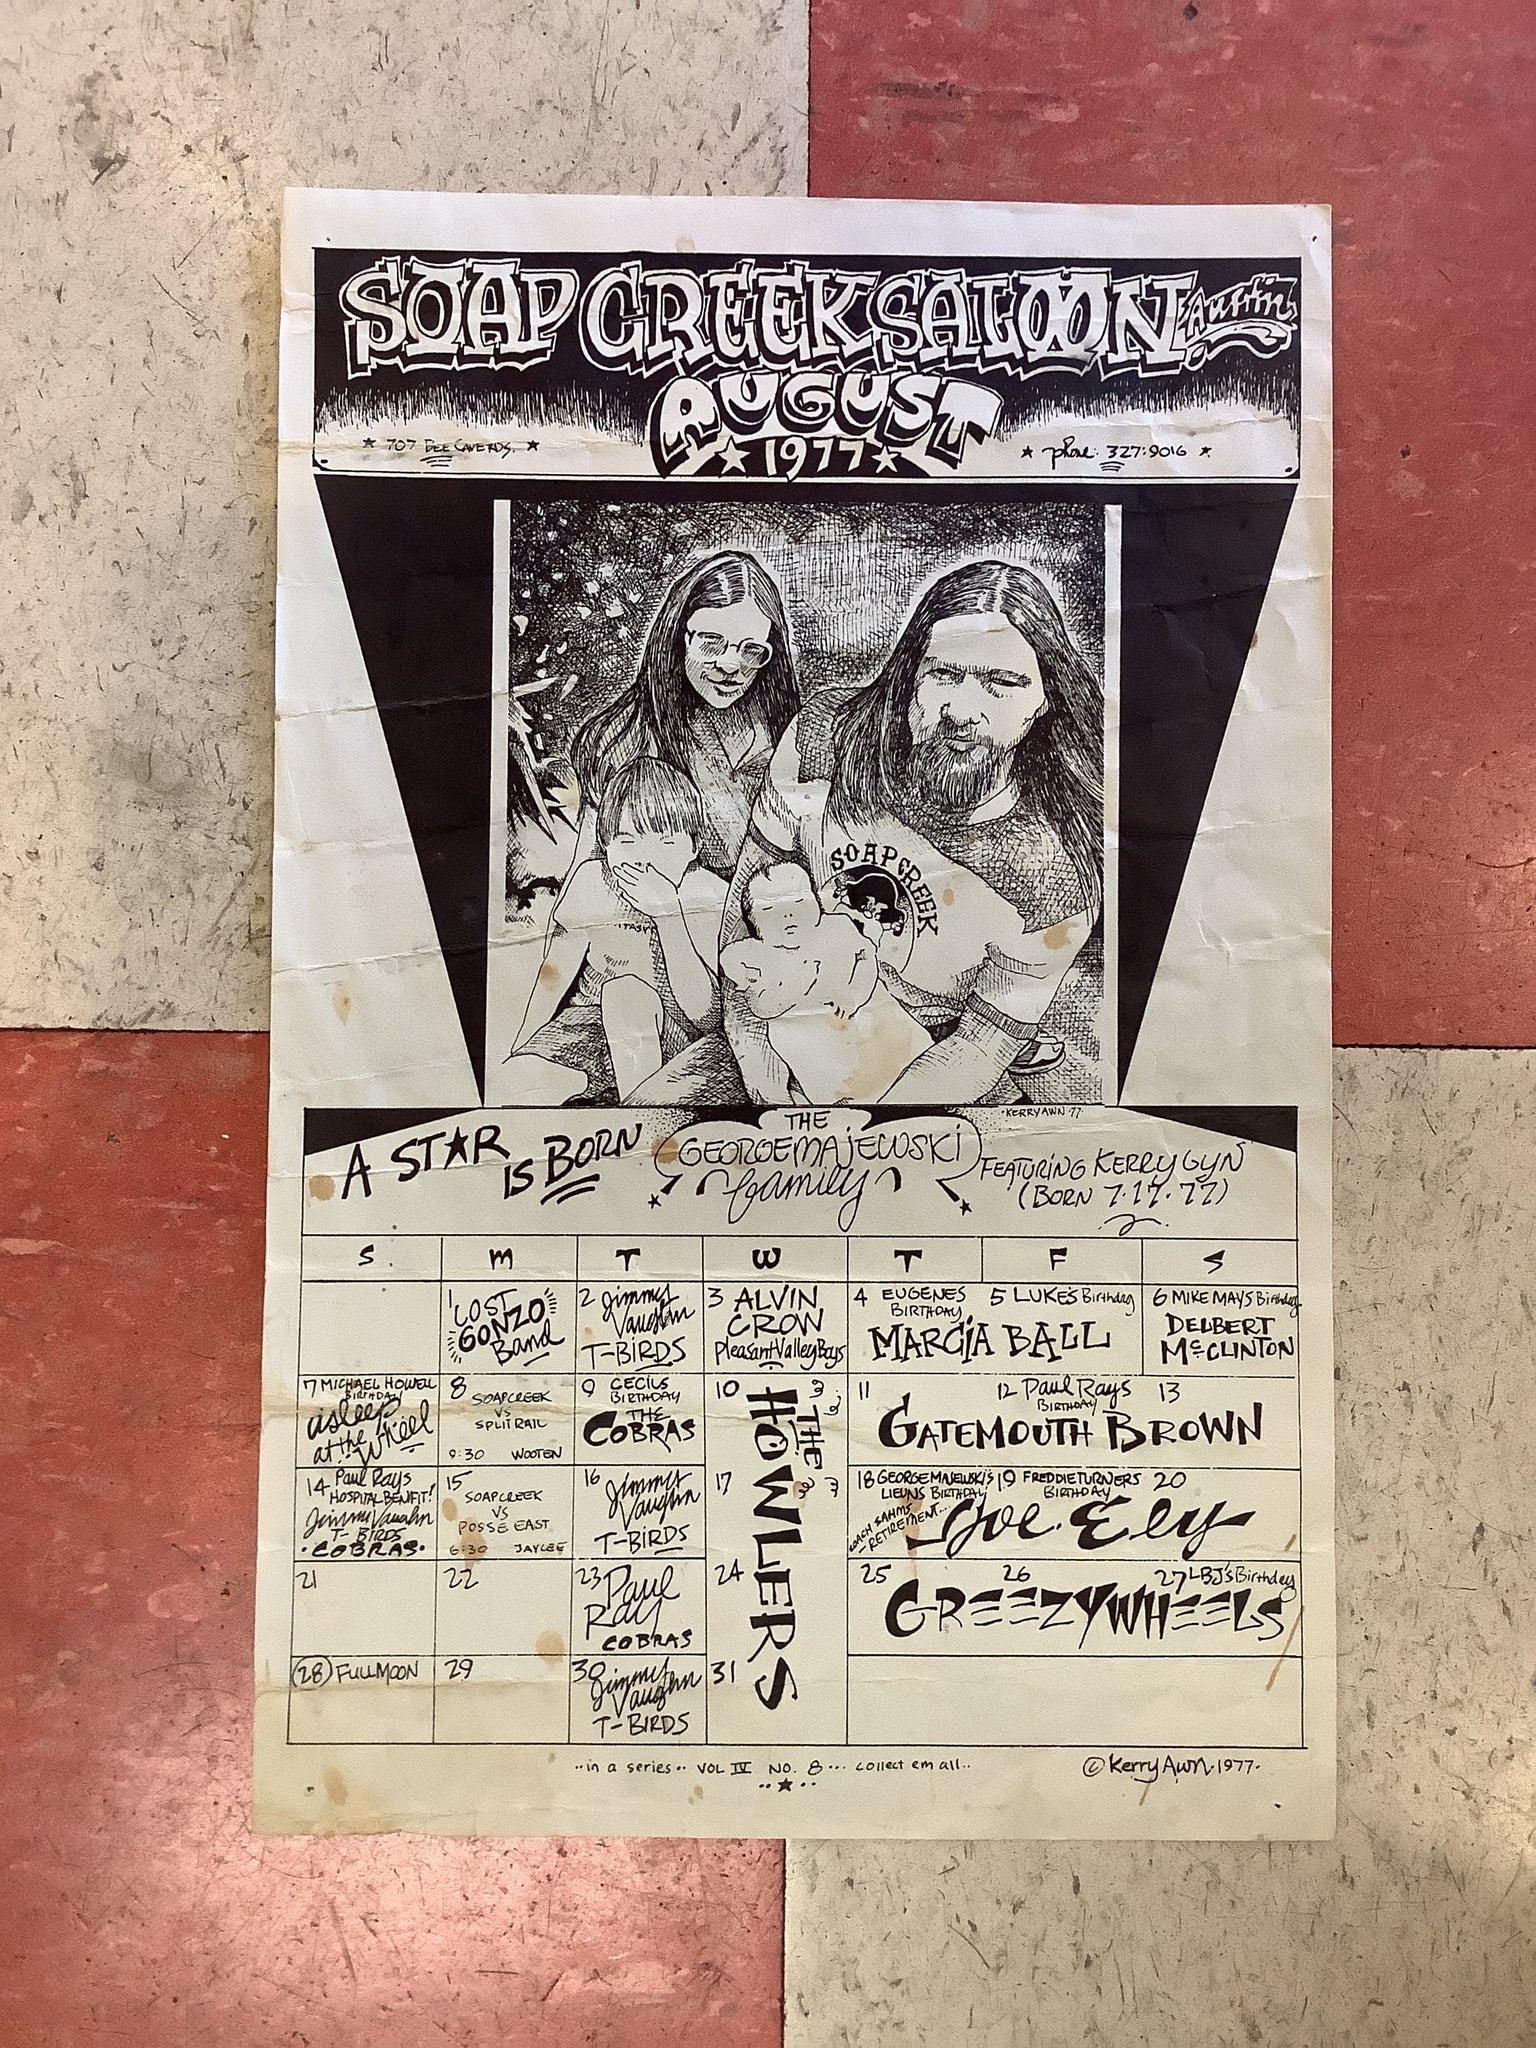 SOAP CREEK SALOON Austin
AUGUST
1977
707 BEE CAVE RDS.
phone: 327:9016
SOAP CREEK
KERRY AWN 77
A STAR IS BORN
THE
GEORGE MAJEWSKI
family
FEATURING KERRY GYN
(BORN 7-17-77)
S. M T W T F S
1 LOST GONZO Band
2 Jimmy Vaughn
T-BIRDS
3 ALVIN CROW
Pleasant Valley Boys
4 EUGENES BIRTHDAY
5 LUKE'S Birthday
MARCIA BALL
6 MIKE MAYS Birthday
DELBERT McCLINTON
7 MICHAEL HOWELL BIRTHDAY
asleep at the Wheel
8 SOAPCREEK
VS
SPLITRAIL
9:30 WOOTEN
9 CECILS BIRTHDAY
THE COBRAS
10
THE HOWLERS
11
12 Paul Rays BIRTHDAY
13
GATEMOUTH BROWN
14 Paul Rays
HOSPITAL BENIFIT!
Jimmy Vaughn
T-BIRDS
•COBRAS•
15 SOAPCREEK
VS
POSSE EAST
6:30 JAYCEE
16 Jimmy Vaughn
T-BIRDS
17
18 GEORGE MAJEWSKI'S
BIRTHDAY
19 FREDDIE TURNERS
BIRTHDAY
20
SAHMS
RETIREMENT...
Joe Ely
21
22
23 Paul Ray
COBRAS
24
25
26
27 LBJ'S Birthday
GREEZY WHEELS
28 FULL MOON
29
30 Jimmy Vaughn
T-BIRDS
31
..in a series.. VOL IV NO. 8... collect em all..
© Kerry Awn. 1977.